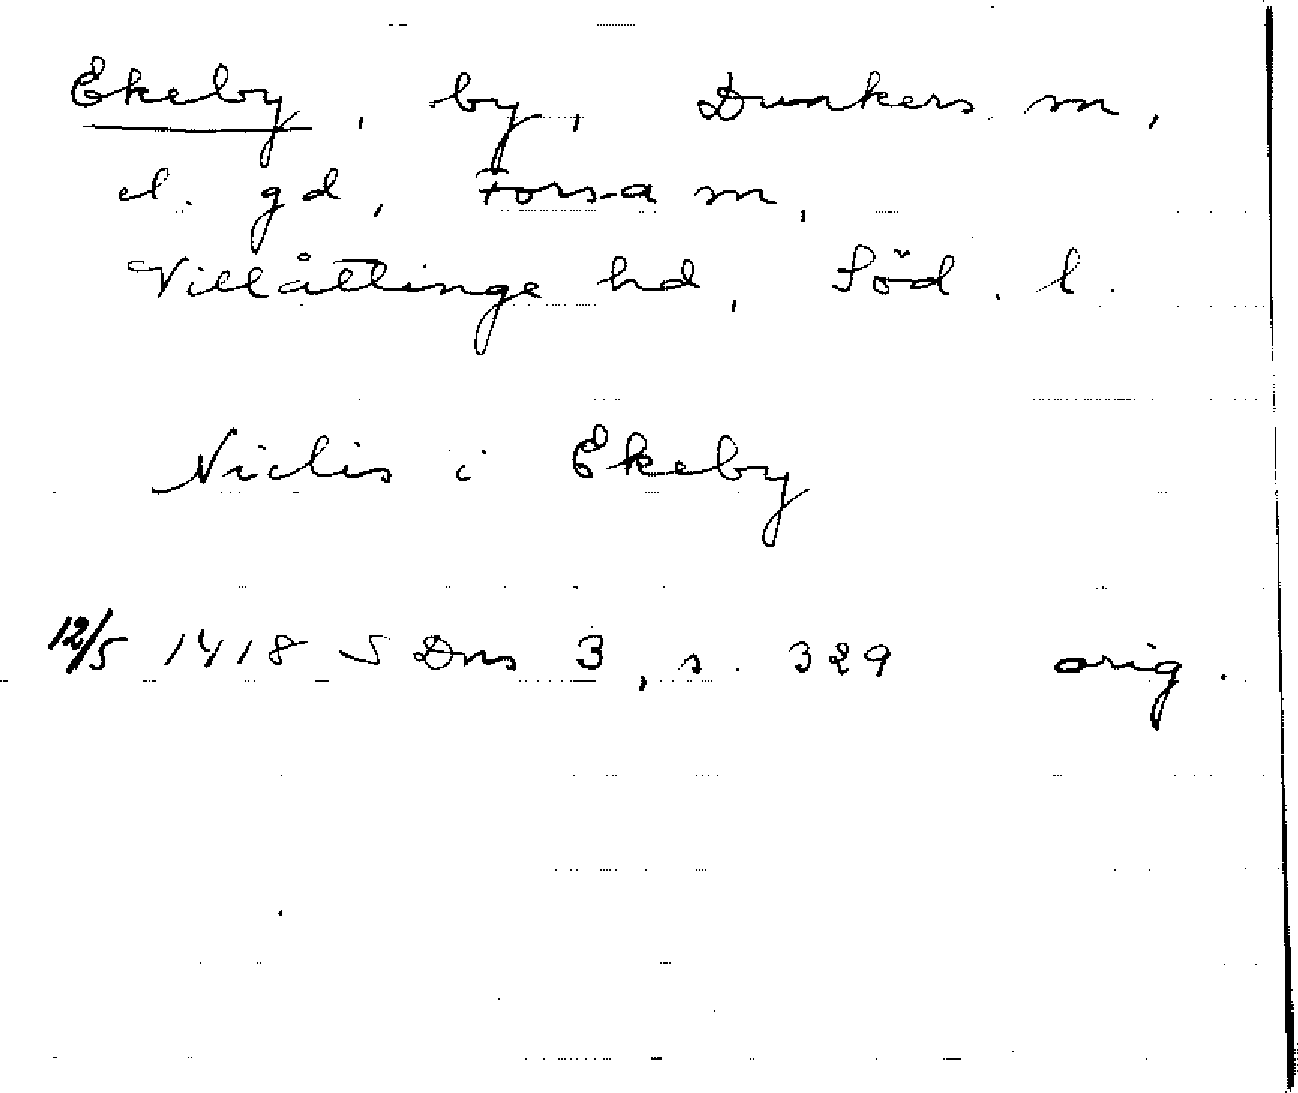 Ekeby, by, Dunkers sn,
el. gd, Forsa sn,
Villåttinge hd, Söd. l.
Niclis i Ekeby
12/5 1418 SDns 3, s. 329 orig.